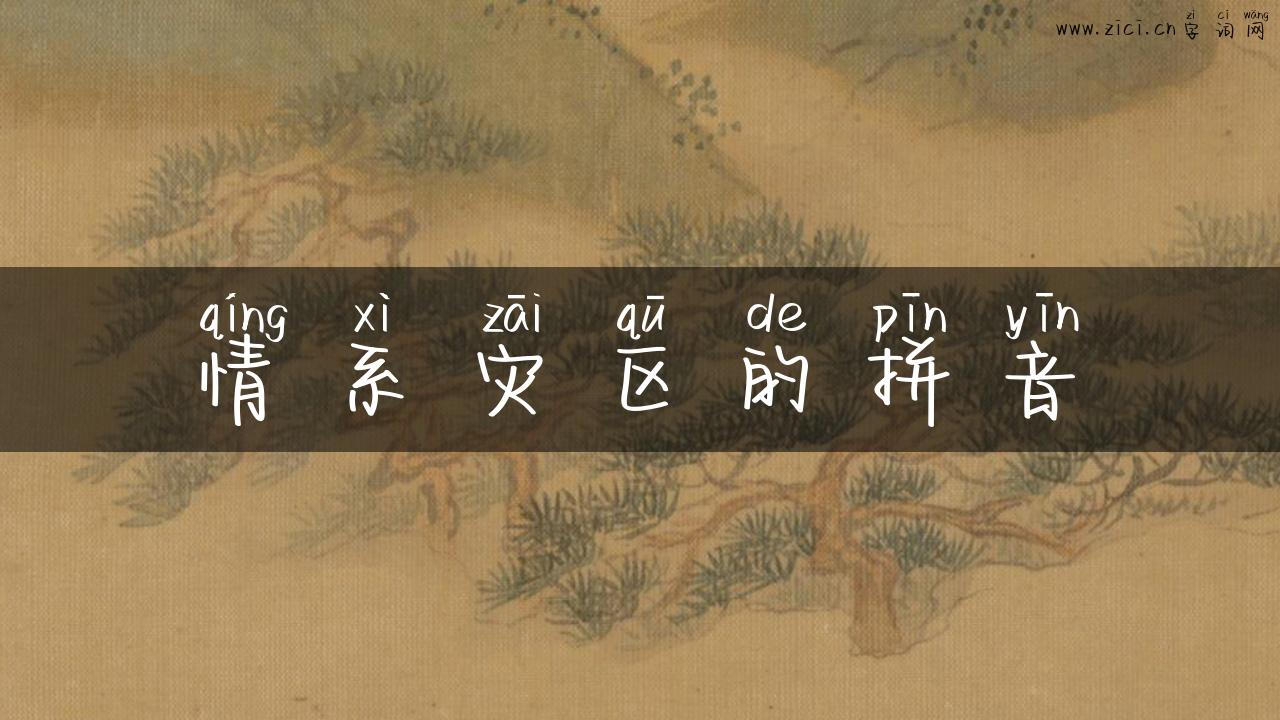 zì cí wǎng
www.zici.cn 字词网
qíng xì zāi qū de pīn yīn
情系灾区的拼音